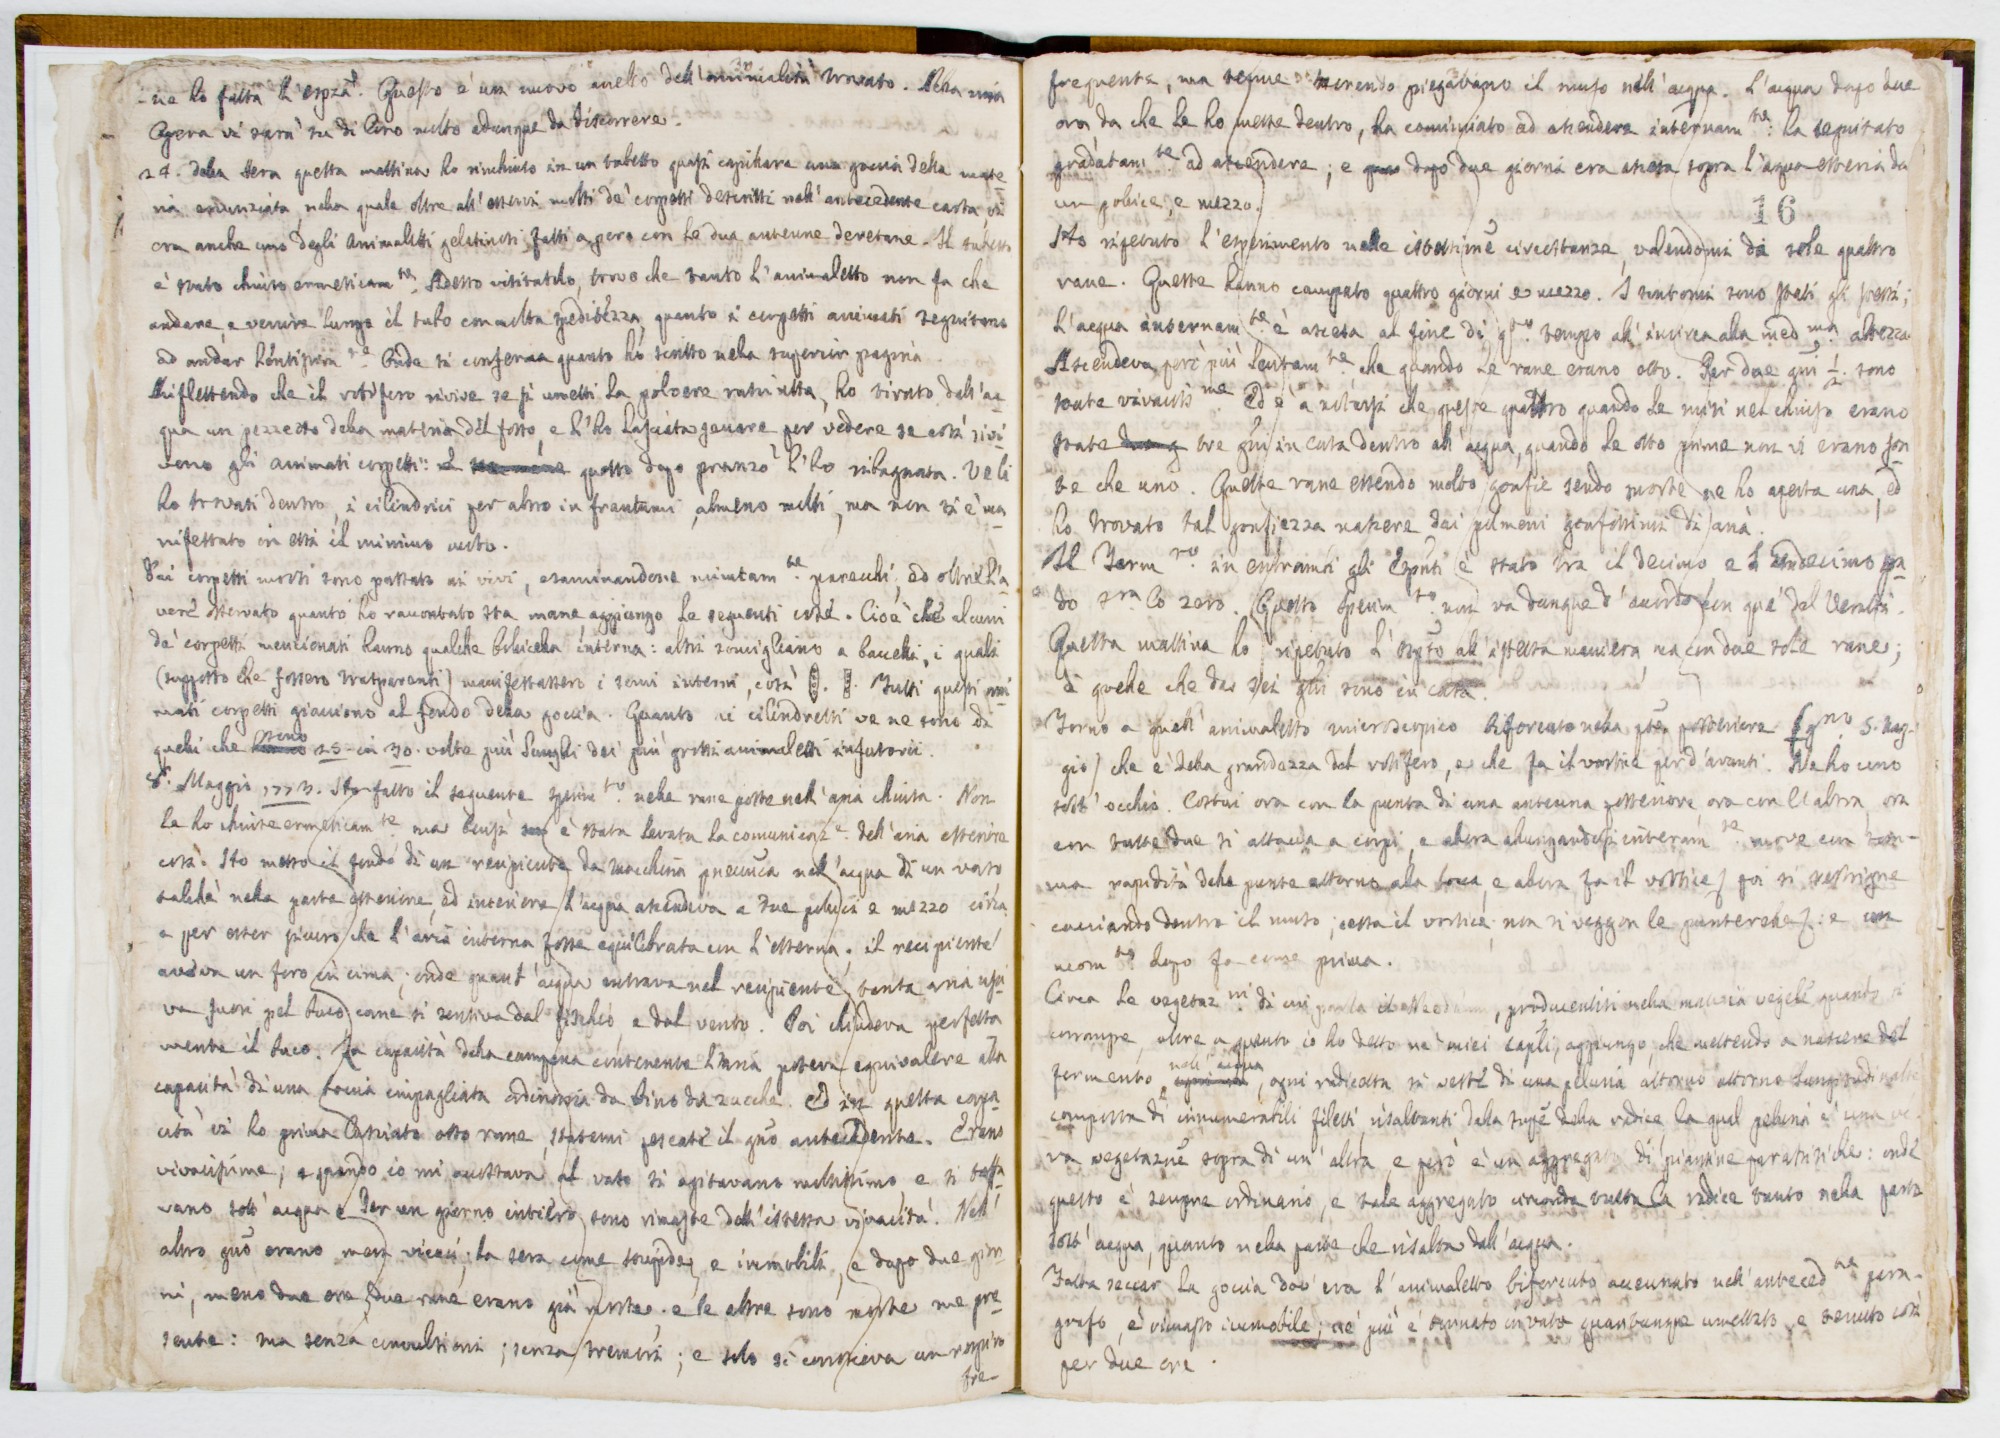 ne ho fatta l'espza. Questo è un nuovo anello dell'animalità trovato. Nella mia
Opera vi sarà su di loro molto adunque da discorrere.
24. della sera questa mattina ho rinchiuso in un tubetto quasi capillare una goccia della mate
ria enunziata, nella quale oltre all'esservi molti de' corpetti descritti nell'antecedente carta vi
era anche uno degli animaletti gelatinosi fatti a pero con le due antenne deretane. Il tubetto
è stato chiuso ermeticam.te Adesso visitatolo, trovo che tanto l'animaletto non fa che
andare, e venire lungo il tubo con molta speditezza, quanto i corpetti animati seguitano
ad andar lentissim.te Onde si conferma quanto ho scritto nella superior pagina.
Riflettendo che il rotifero rivive se si umetti la polvere rasciutta, ho tirato dall'ac
qua un pezzetto della materia del fosso, e l'ho lasciata seccare per vedere se così rivi
vono gli animati corpetti: questo dopo pranzo l'ho ribagnata. Ve li
ho trovati dentro, i cilindrici per altro in frantumi, almeno molti, ma non si è ma
nifestato in essi il minimo moto.
Dai corpetti morti sono passato ai vivi, esaminandone minutam.te parecchi, ed oltre l'a
vere osservato quanto ho raccontato sta mane aggiungo le seguenti cose. Cioè che alcuni
de' corpetti mencionati hanno qualche bollicella interna: altri somigliano a baccelli, i quali
(supposto che fossero trasparenti) manifestassero i semi interni, così. Tutti questi ani
mati corpetti giacciono al fondo della goccia. Quanto ai cilindretti ve ne sono di
quelli che sono 25 in 30. volte più lunghi dei più grossi animaletti infusorii.
8. Maggio 1773. Ho fatto il seguente sperim.to nelle rane poste nell'aria chiusa. Non
le ho chiuse ermeticam.te ma bensì è stata levata la comunicaz.e dell'aria esteriore
così. Ho messo il fondo di un recipiente da macchina pneuca nell'acqua di un vaso
talchè nella parte esteriore, ed interiore l'acqua ascendeva a due pollici e mezzo circa
e per esser sicuro che l'aria interna fosse equilibrata con l'esterna, il recipiente
aveva un foro in cima; onde quant'acqua entrava nel recipiente, tanta aria usci
va fuori pel buco, come si sentiva dal fischio e dal vento. Poi chiudeva perfetta
mente il buco. La capacità della campana contenente l'aria poteva equivalere alla
capacità di una boccia impagliata ordinaria da vino da zucche. Ed in questa capa
cità vi ho prima lasciato otto rane, statemi pescate il gno antecedente. Erano
vivacissime; e quando io mi accostava al vaso si agitavano moltissimo e si tuffa
vano sott'acqua. Per un giorno intiero sono rimaste dell'istessa vivacità. Nell'
altro gno erano men vivaci; la sera come stupide, e immobili, e dopo due gior
ni, meno due ore, due rane erano già morte, e le altre sono morte me pre
sente: ma senza convulsioni; senza tremori; e solo si conosceva un respiro
fre-
frequente, ma tenue. Morendo piegavano il muso nell'acqua. L'acqua dopo due
ore da che le ho messe dentro, ha cominciato ad ascendere internam.te: ha seguitato
gradatam.te ad ascendere; e dopo due giorni era ascesa sopra l'acqua esteriore da
un pollice, e mezzo.
16
Ho ripetuto l'esperimento nelle istessime circostanze, valendomi di sole quattro
rane. Queste hanno campato quattro giorni e mezzo. I sintomi sono stati gli stessi;
l'acqua internam.te è ascesa al fine di q.to tempo all'incirca alla med.ma altezza
Ascendeva però più lentam.te che quando le rane erano otto. Per due gni ½. sono
state vivaciss.me Ed è a notarsi che queste quattro quando le misi nel chiuso erano
state tre gni in casa dentro all'acqua, quando le otto prime non vi erano sta
te che uno. Queste rane essendo molto gonfie sendo morte, ne ho aperta una, ed
ho trovato tal gonfiezza nascere dai polmoni gonfissimi di aria.
Il Term.ro in entrambi gli Esponti è stato tra il decimo e l'undecimo gra
do sra lo zero. Questo sperim.to non va dunque d'accordo con que' del Veratti.
Questa mattina ho ripetuto l'espto all'istessa maniera, ma con due sole rane;
di quelle che da sei gni sono in casa.
Torno a quell'animaletto microscopico biforcuto nella pte posteriore (gno 5. Mag-
gio) che è della grandezza del rotifero, e che fa il vortice per d'avanti. Ne ho uno
sott'occhio. Costui ora con la punta di una antenna posteriore, ora con l'altra, ora
con tutte due si attacca a corpi, e allora allungandosi interam.te move con som-
ma rapidità delle punte attorno alla bocca, e allora fa il vortice; poi si restrigne
cacciando dentro il muso; cessa il vortice; non si veggon le punterelle; e un
mom.to dopo fa come prima.
Circa le vegetaz.ni di cui parla, producentisi nella materia vegele quando si
corrompe, oltre a quanto io ho detto ne' miei Capli, aggiungo, che mettendo a nascere del
fermento nell'acqua, ogni radicetta si veste di una peluria attorno attorno
composta di innumerabili filetti risaltanti dalla supe della radice la qual peluria è una ve
ra vegetazne sopra di un'altra e però è un aggregato di piantine parasitiche: onde
questo è sempre ordinario, e tale aggregato circonda tutta la radice tanto nella parte
sott'acqua, quanto nella parte che risalta dall'acqua.
Fatta seccar la goccia dov'era l'animaletto biforcuto accennato nell'anteced.te para-
grafo, è rimasto immobile; nè più è tornato in vita quantunque umettato, e tenuto così
per due ore.